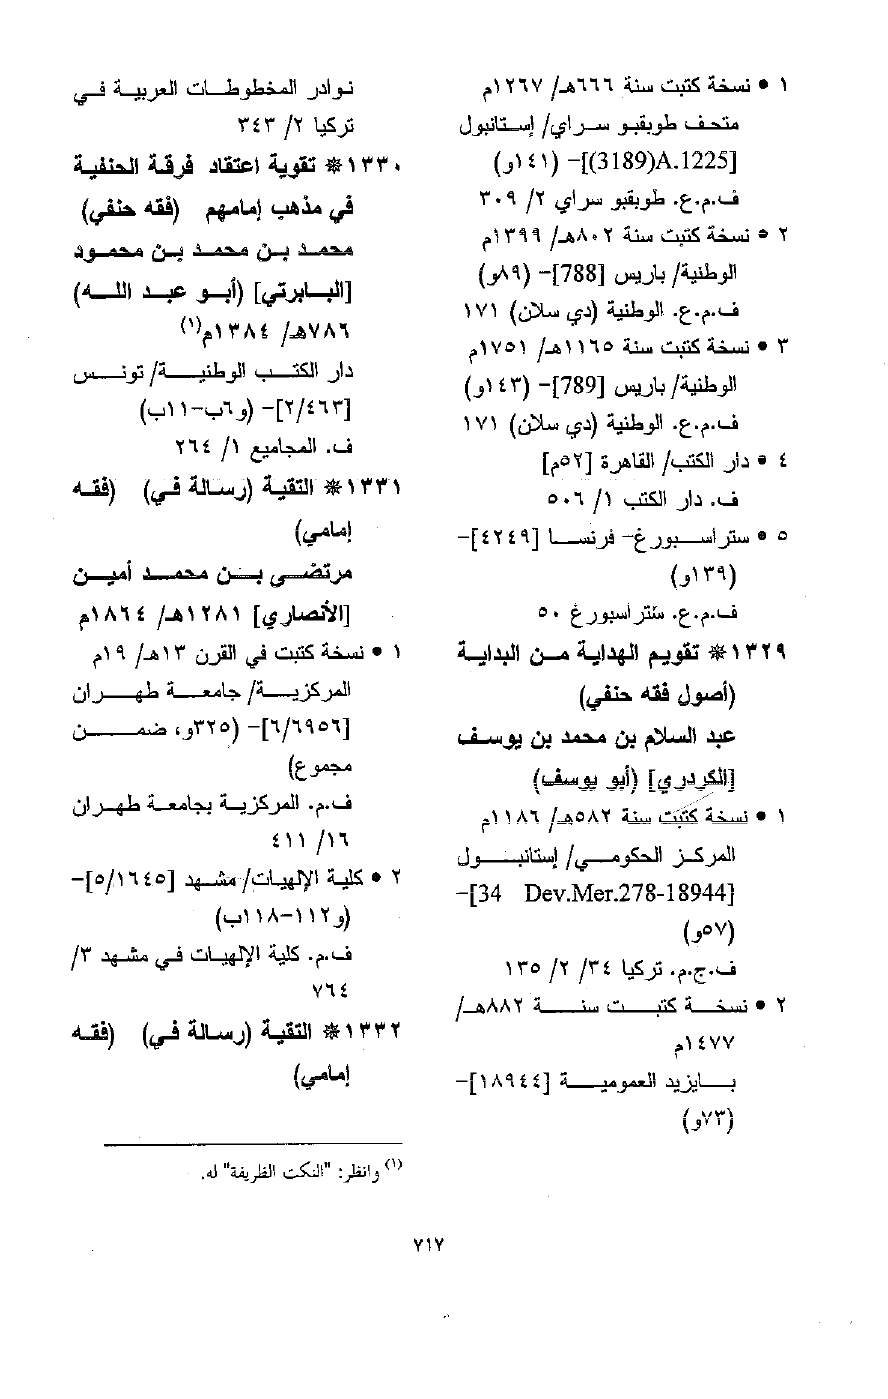 ١ • نسخة كتبت سنة ٦٦٦هـ/ ١٢٦٧م
متحف طوبقبو سراي/ إستانبول
[A.1225(3189)]- (١٤١و)
ف.م.ع. طوبقبو سراي ٢/ ٣٠٩
٢ • نسخة كتبت سنة ٨٠٢هـ/ ١٣٩٩م
الوطنية/ باريس [788]- (٨٩و)
ف.م.ع. الوطنية (دي سلان) ١٧١
٣ • نسخة كتبت سنة ١١٦٥هـ/ ١٧٥١م
الوطنية/ باريس [789]- (١٤٣و)
ف.م.ع. الوطنية (دي سلان) ١٧١
٤ • دار الكتب/ القاهرة [٥٢م]
ف. دار الكتب ١/ ٥٠٦
٥ • ستراسبورغ- فرنسا [٤٢٤٩]-
(١٣٩و)
ف.م.ع. ستراسبورغ ٥٠
١٣٢٩* تقويم الهداية من البداية
(أصول فقه حنفي)
عبد السلام بن محمد بن يوسف
[الكردري] (أبو يوسف)
١ • نسخة كتبت سنة ٥٨٢هـ/ ١١٨٦م
المركز الحكومي/ إستانبول
[34 Dev.Mer.278-18944]-
(٥٧و)
ف.ج.م. تركيا ٣٤/ ٢/ ١٣٥
٢ • نسخة كتبت سنة ٨٨٢هـ/
١٤٧٧م
بايزيد العمومية [١٨٩٤٤]-
(٧٣و)
نوادر المخطوطات العربية في
تركيا ٢/ ٣٤٣
١٣٣٠* تقوية اعتقاد فرقة الحنفية
في مذهب إمامهم (فقه حنفي)
محمد بن محمد بن محمود
[البابرتي] (أبو عبد الله)
٧٨٦هـ/ ١٣٨٤م(١)
دار الكتب الوطنية/ تونس
[٢/٤٦٣]- (و٦ب-١١ب)
ف. المجاميع ١/ ٢٦٤
١٣٣١* التقية (رسالة في) (فقه
إمامي)
مرتضى بن محمد أمين
[الأنصاري] ١٢٨١هـ/ ١٨٦٤م
١ • نسخة كتبت في القرن ١٣هـ/ ١٩م
المركزية/ جامعة طهران
[٦/٦٩٥٦]- (٣٢٥و، ضمن
مجموع)
ف.م. المركزية بجامعة طهران
١٦/ ٤١١
٢ • كلية الإلهيات/ مشهد [٥/١٦٤٥]-
(و١١٢-١١٨ب)
ف.م. كلية الإلهيات في مشهد ٣/
٧٦٤
١٣٣٢* التقية (رسالة في) (فقه
إمامي)
(١) وانظر: "النكت الظريفة" له.
٧١٧